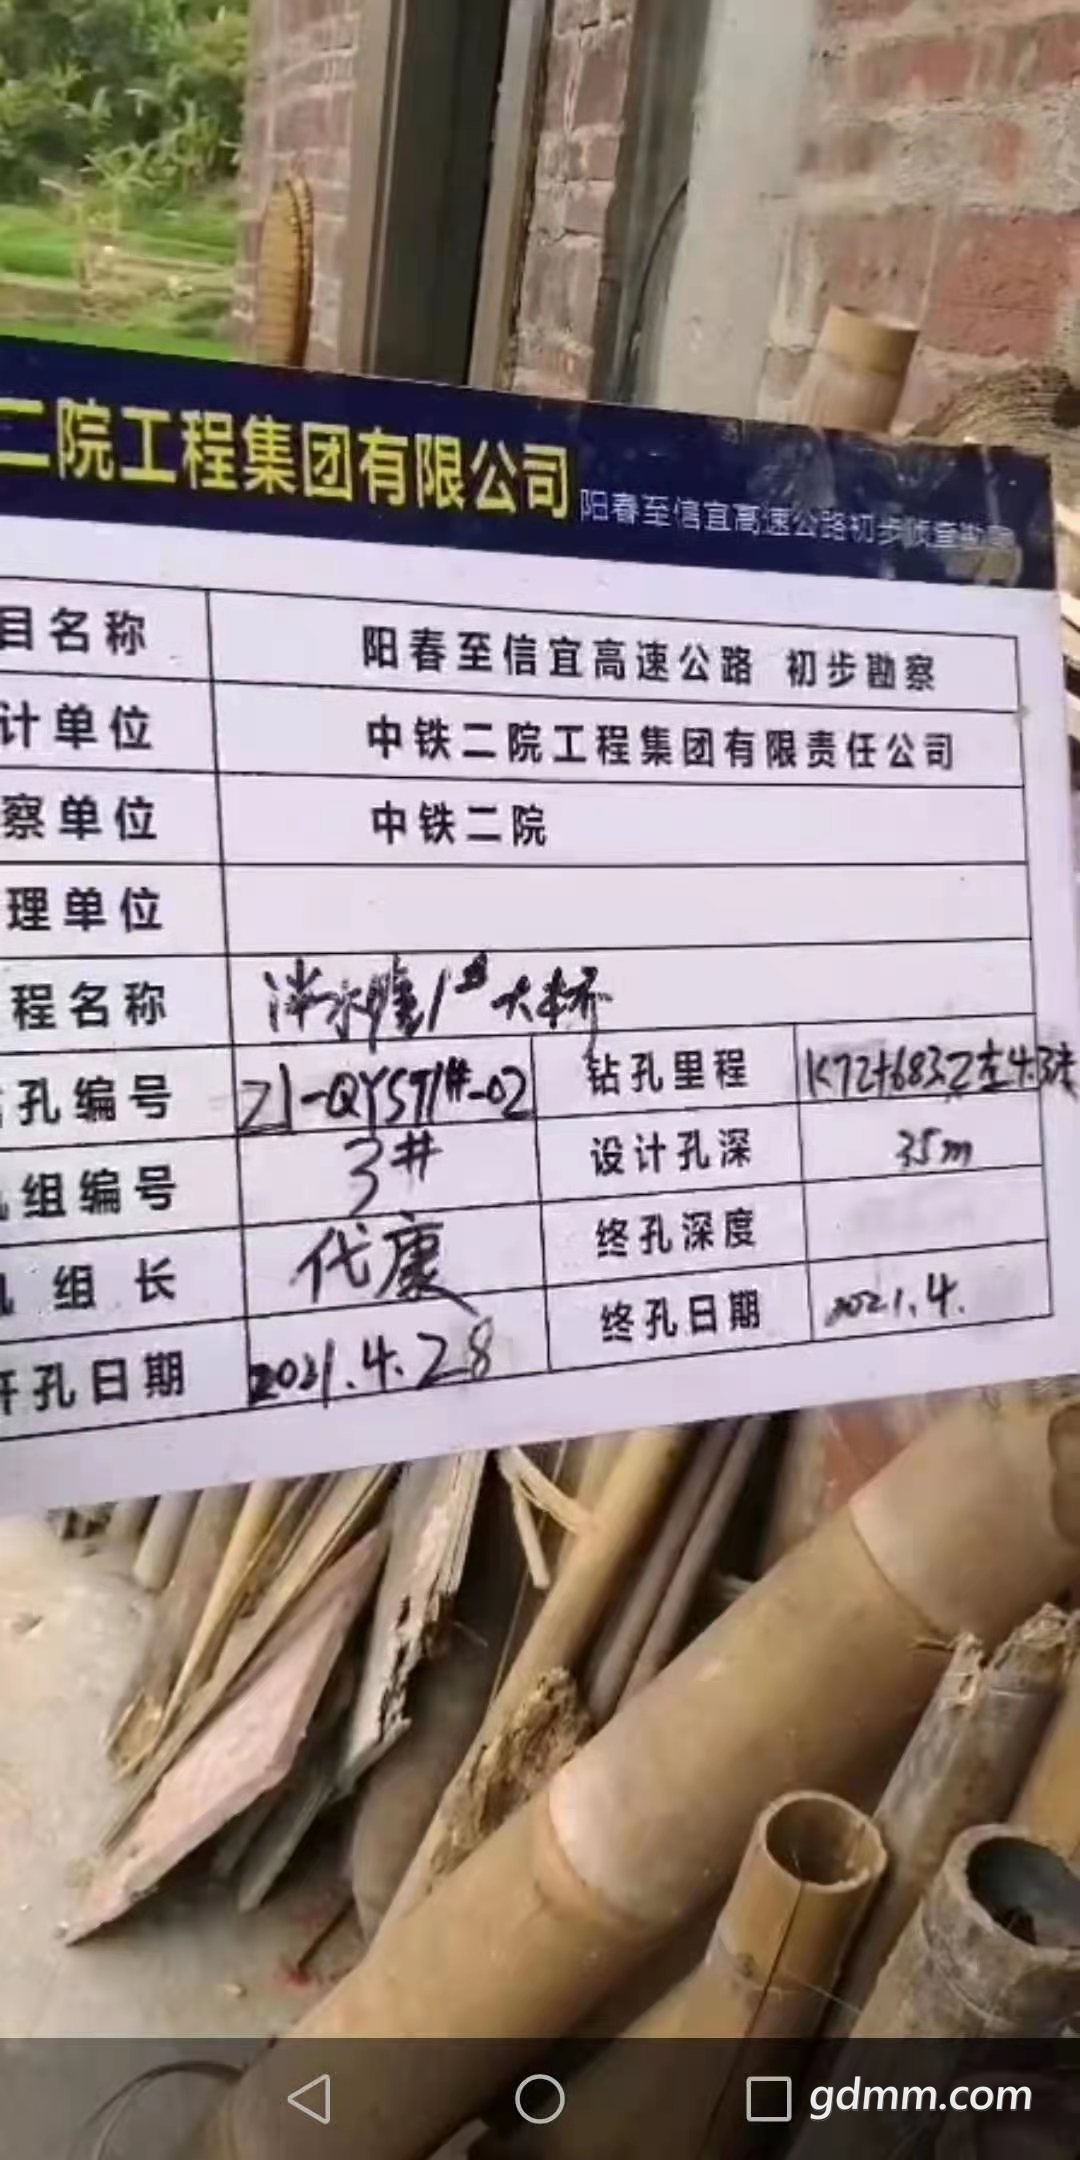 二院工程集团有限公司 阳春至信宜高速公路初步
目名称 阳春至信宜高速公路 初步勘察
计单位 中铁二院工程集团有限责任公司
察单位 中铁二院
理单位
程名称 1# 大桥
孔编号 21-QYST1#-02 钻孔里程 K72+683.2左4.3米
组编号 3# 设计孔深 35m
组长 代康 终孔深度
开孔日期 2021.4.28 终孔日期 2021.4.
gdmm.com